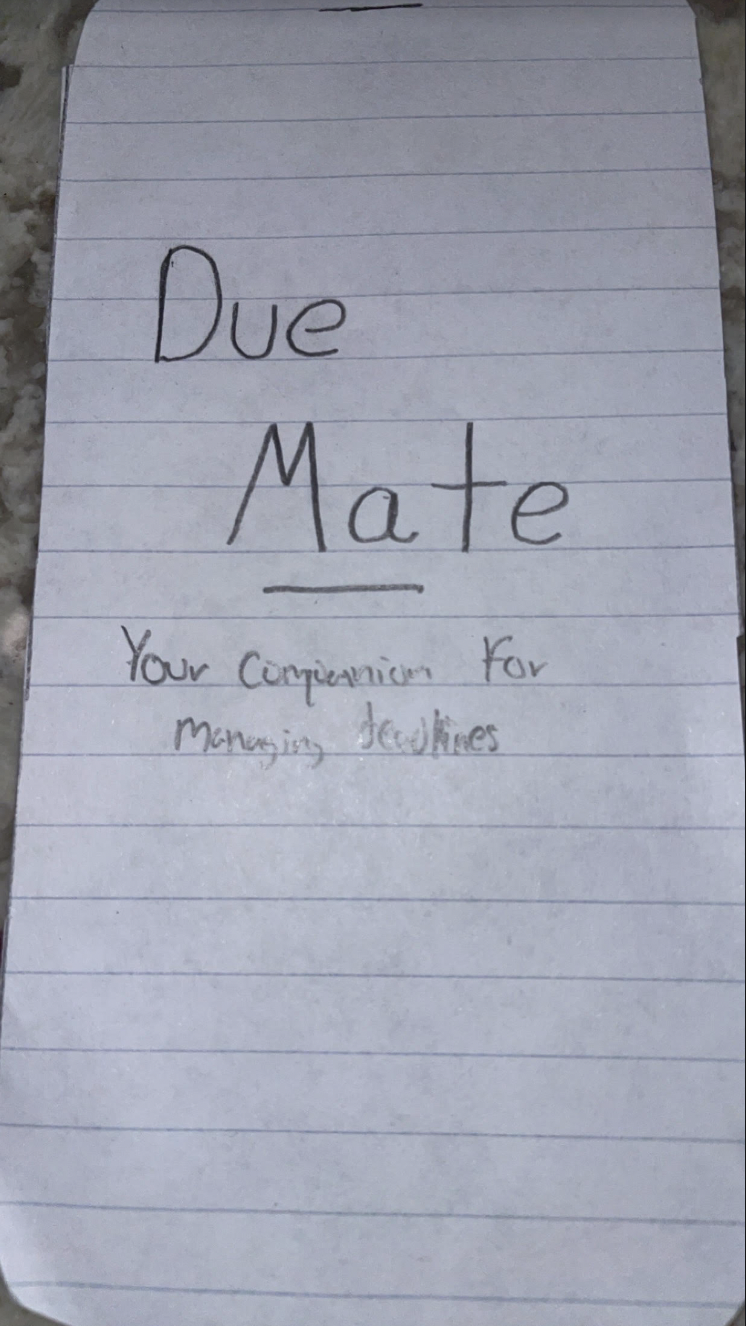 Due
Mate
Your Companion For
managing deadlines